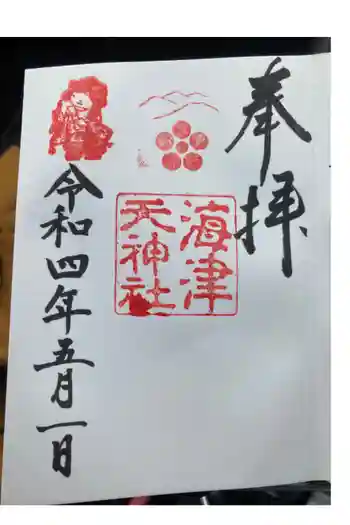 奉拝
海津
天神社
令和四年五月一日